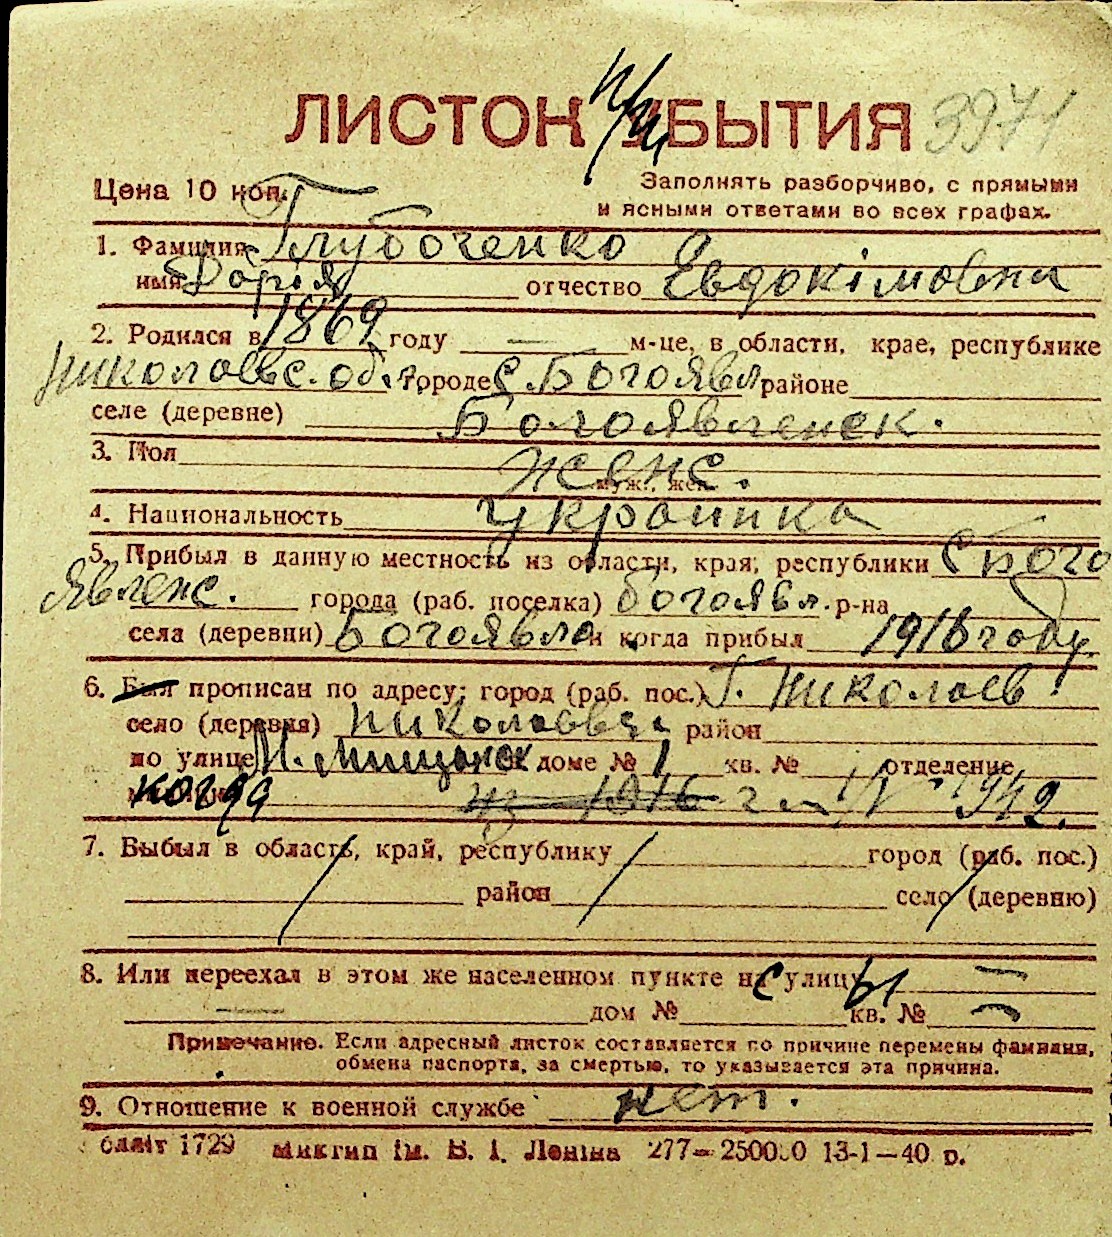 ЛИСТОК При УБЫТИЯ 3971
Цена 10 коп. Заполнять разборчиво, с прямыми
и ясными ответами во всех графах.
1. Фамилия Глубоченко
имя Дарія отчество Евдокімовна
2. Родился в 1869 году — м-це, в области, крае, республике
Николаевс. об. городе с. Богоявл районе
селе (деревне) Богоявленск.
3. Пол Женс.
муж., жен.
4. Национальность украинка
5. Прибыл в данную местность из области, края, республики с Бого
явленс. города (раб. поселка) богоявл. р-на
села (деревни) Богоявле и когда прибыл 1916 году.
6. Был прописан по адресу: город (раб. пос.) Г. Николаев
село (деревня) район
по улице М. Мищанск в доме № 1 кв. № отделение
милиции когда из 1916 г. IV 1942.
7. Выбыл в область, край, республику город (раб. пос.)
район село (деревню)
8. Или переехал в этом же населенном пункте на с улицу ы —
— дом № кв. № —
Примечание. Если адресный листок составляется по причине перемены фамилии,
обмена паспорта, за смертью, то указывается эта причина.
9. Отношение к военной службе нет.
блміт 1729 Миктип ім. В. І. Леніна 277—250000 13-1—40 р.